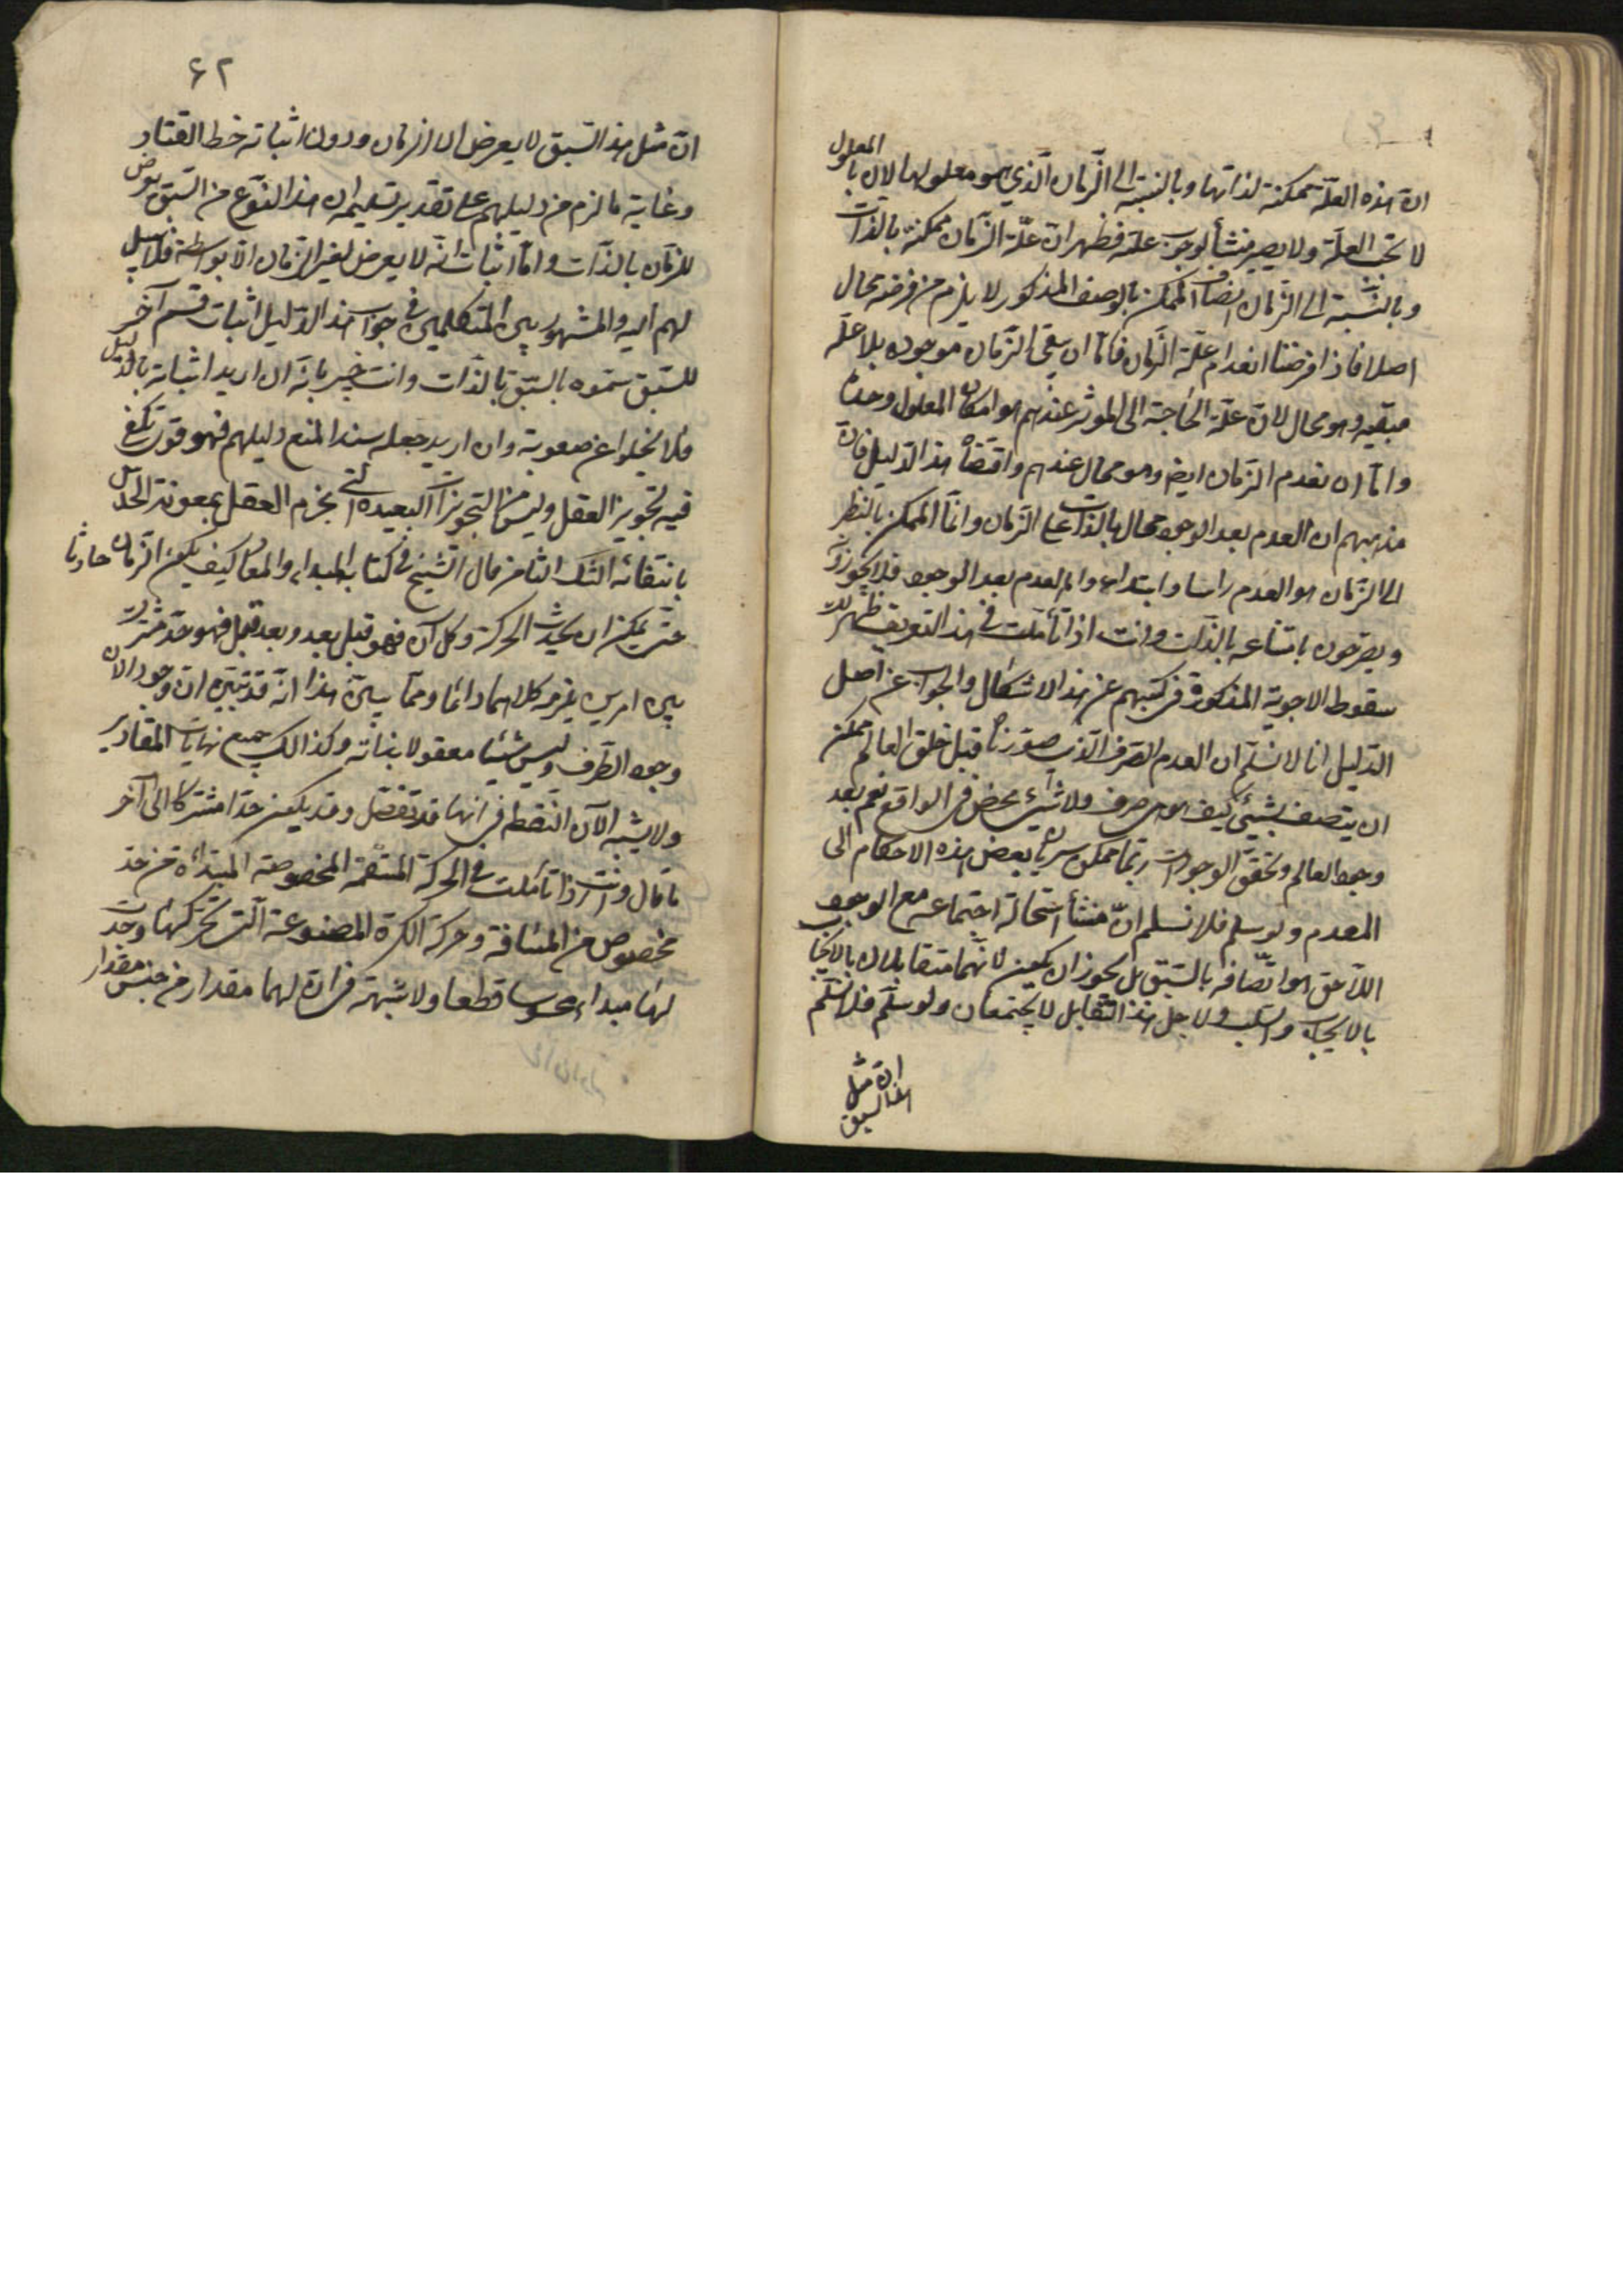 ان هذه العلة ممكنة لذاتها وبالنسبة الى الزمان الذي هو معلولها لان بالمعلول
لا تجب العلة ولا يصير منشأ لوجوب علته فظهر ان علة الزمان ممكنة بالذات
وبالنسبة الى الزمان ايضا والممكن بالوصف المذكور لا يلزم من فرضه محال
اصلا فاذا فرضنا انعدام علة الزمان فاما ان يبقى الزمان موجودا بلا علة
مبقيه وهو محال لان علة الحاجة الى المؤثر عندهم هو امكان المعلول وحده
واما ان يعدم الزمان ايض وهو محال عندهم واقتضاه هذا الدليل فان
مذهبهم ان العدم بعد الوجود محال بالذات على الزمان وانما الممكن بالنظر
الى الزمان هو العدم راسا وابتداء واما العدم بعد الوجود فلا يجوزونه
ويصرحون بامتناعه بالذات وانت اذا تأملت في هذا التعريف ظهر لك
سقوط الاجوبة المذكورة في كتبهم عن هذا الاشكال والجواب عن اصل
الدليل انا لا نسلم ان العدم الصرف الذي صورناه قبل خلق العالم ممكن
ان يتصف بشيئ كيف هو لا صرف ولا شيئ محض في الواقع نعم بعد
وجود العالم وتحقق الوجودات ربما يمكن سريان بعض هذه الاحكام الى
المعدم ولو سلم فلا نسلم ان منشأ استحالة اجتماعه مع الوجود
اللاحق هو اتصافه بالسبق بل يجوز ان يكون لانهما متقابلان بالايجاب
بالايجاب والسلب ولاجل هذا التقابل لا يجتمعان ولو سلم فلا نسلم
ان مثل
هذا السبق
۶۲
ان مثل هذا السبق لا يعرض الا الزمان ودون اثباته خط القتاد
وغاية ما لزم من دليلهم على تقدير تسليمه ان هذا النوع من السبق يعرض
للزمان بالذات واما اثبات انه لا يعرض لغير الزمان الا بواسطة فلا سبيل
لهم اليه والمشهور بين المتكلمين في جواب هذا الدليل اثبات قسم آخر
للسبق سموه بالسبق بالذات وانت خبير بانه ان اريد اثباته بالدليل
فلا يخلوا عن صعوبة وان اريد جعله سند المنع دليلهم فهو قوي تكفى
فيه تجويز العقل وليس من التجويزات البعيدة التي يجزم العقل بمعونة الحدس
بانتفائه الشك الثامن قال الشيخ في كتاب المبداء والمعاد كيف يكون الزمان حادثا
حتى يمكن ان يحدث الحركة وكل آن فهو قبل بعد وبعد قبل فهو حد مشترك
بين امرين يلزمه كلاهما دائما ومما يبين هذا انه قد تبين ان وجود الآن
وجود الطرف وليس شيئا معقولا بذاته وكذالك جميع نهايات المقادير
ولا يشبه الآن النقطة في انها قد تفصل وقد يكون حدا مشتركا الى آخر
ما قال وانت اذا تأملت في الحركة المستقيمة المخصوصة المبتدأة من حد
مخصوص من المسافة وحركة الكرة المصنوعة التي تحركها وجدت
لهما مبداء محسوسا قطعا ولا شبهة في ان لهما مقدار من جنس مقدار